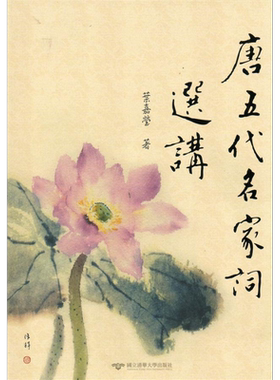 唐五代名家詞
選講
葉嘉瑩 著
國立清華大學出版社